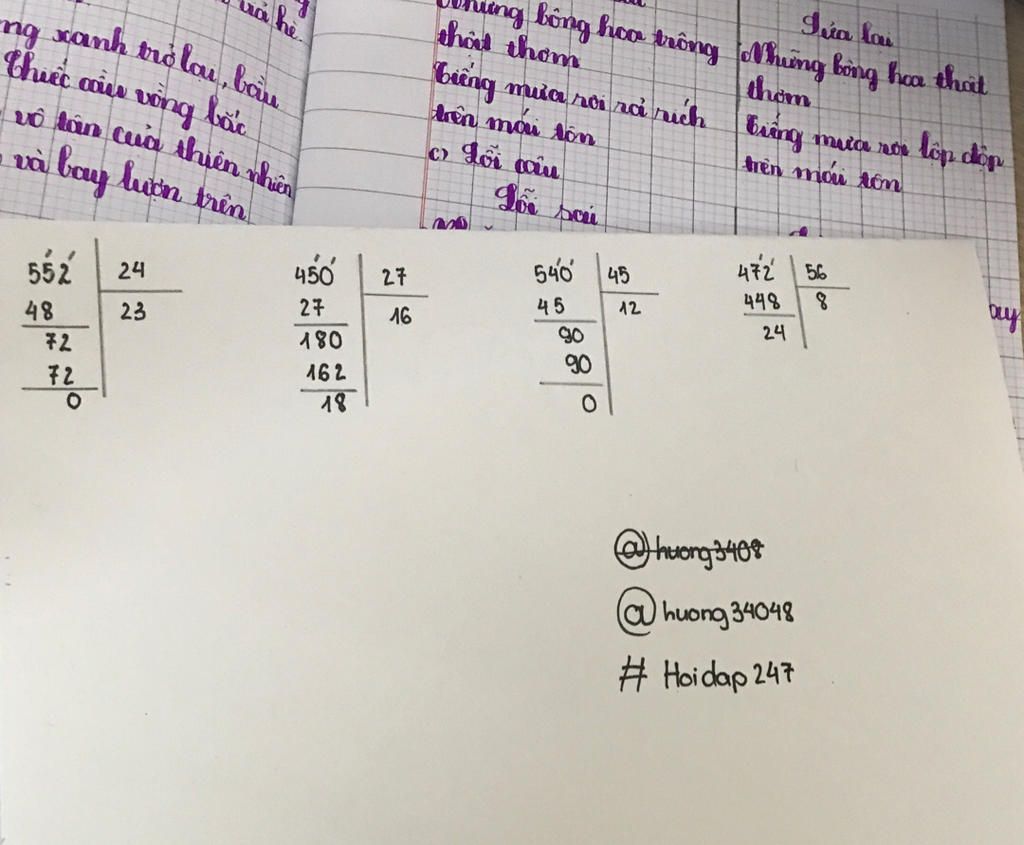 ng xanh trở lại, bầu
Chiếc cầu vồng bắc
vô tận của thiên nhiên
và bay lượn trên
Những bông hoa trông
thật thơm
Tiếng mưa rơi rả rích
trên mái tôn
c) Lỗi câu
Lỗi sai
Sửa lại
Những bông hoa thật
thơm
Tiếng mưa rơi lộp độp
trên mái tôn
ay
552 24
48 23
72
72
0
450 27
27 16
180
162
18
540 45
45 12
90
90
0
472 56
448 8
24
@huong3408
@huong34048
# Hoidap247